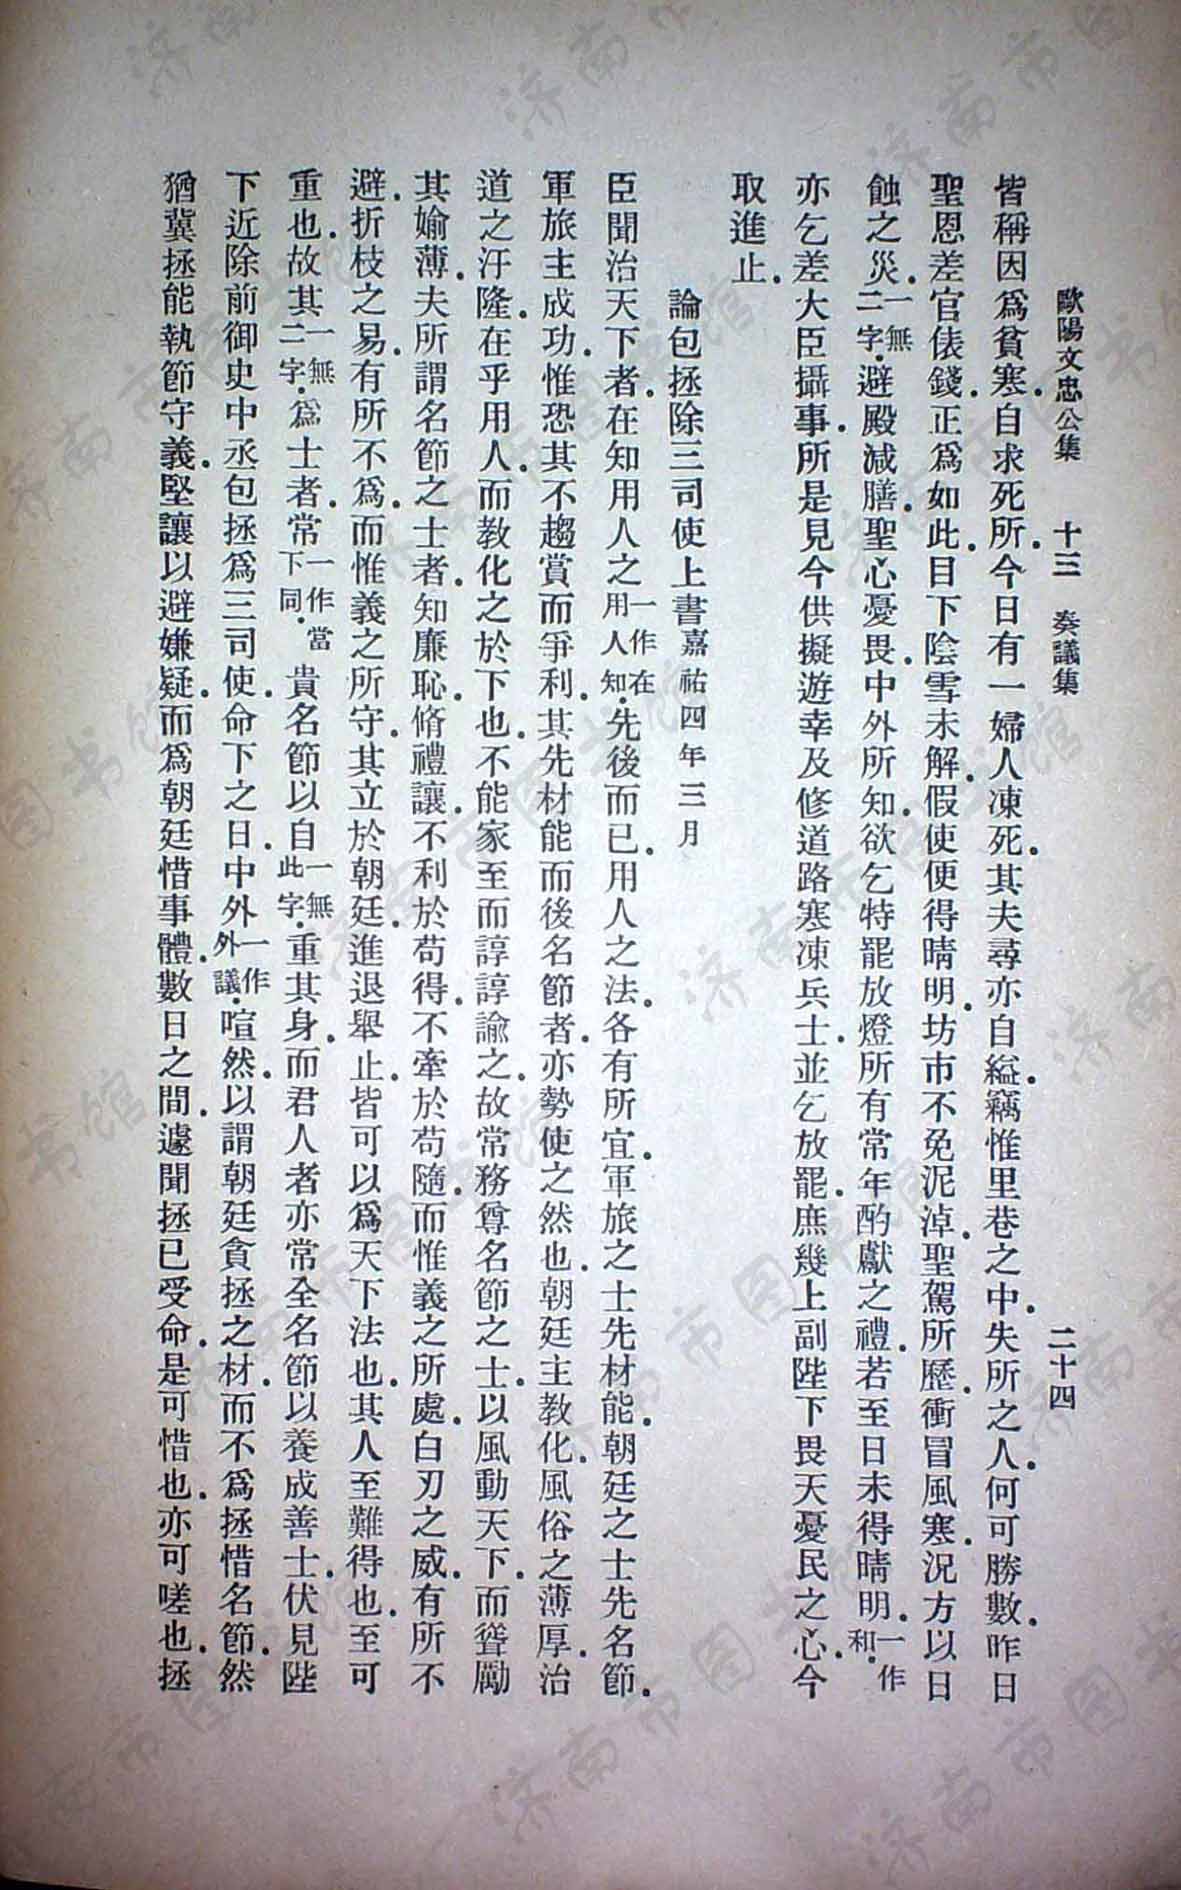 歐陽文忠公集　十三　奏議集　二十四
皆稱因爲貧寒．自求死所．今日有一婦人凍死．其夫尋亦自縊．竊惟里巷之中．失所之人．何可勝數．昨日
聖恩差官俵錢．正爲如此．目下陰雪未解．假使便得晴明．坊市不免泥淖．聖駕所歷．衝冒風寒．況方以日
蝕之災．一無二字．避殿減膳．聖心憂畏．中外所知．欲乞特罷放燈．所有常年酌獻之禮．若至日未得晴明．一作和．
亦乞差大臣攝事．所是見今供擬遊幸及修道路寒凍兵士．並乞放罷．庶幾上副陛下畏天憂民之心．今
取進止．
論包拯除三司使上書嘉祐四年三月
臣聞治天下者．在知用人之一作在用人知．先後而已．用人之法．各有所宜．軍旅之士先材能．朝廷之士先名節．
軍旅主成功．惟恐其不趨賞而爭利．其先材能而後名節者．亦勢使之然也．朝廷主教化．風俗之薄厚．治
道之汙隆．在乎用人．而教化之於下也．不能家至而諄諄諭之．故常務尊名節之士．以風動天下．而聳勵
其媮薄．夫所謂名節之士者．知廉恥．脩禮讓．不利於苟得．不牽於苟隨．而惟義之所處．白刃之威．有所不
避．折枝之易．有所不爲．而惟義之所守．其立於朝廷．進退舉止．皆可以爲天下法也．其人至難得也．至可
重也．故其一無二字．爲士者．常一作當下同．貴名節以自一無此字．重其身．而君人者亦常全名節以養成善士．伏見陛
下近除前御史中丞包拯爲三司使．命下之日．中外一作外議．喧然．以謂朝廷貪拯之材．而不爲拯惜名節．然
猶冀拯能執節守義．堅讓以避嫌疑．而爲朝廷惜事體．數日之間．遽聞拯已受命．是可惜也．亦可嗟也．拯